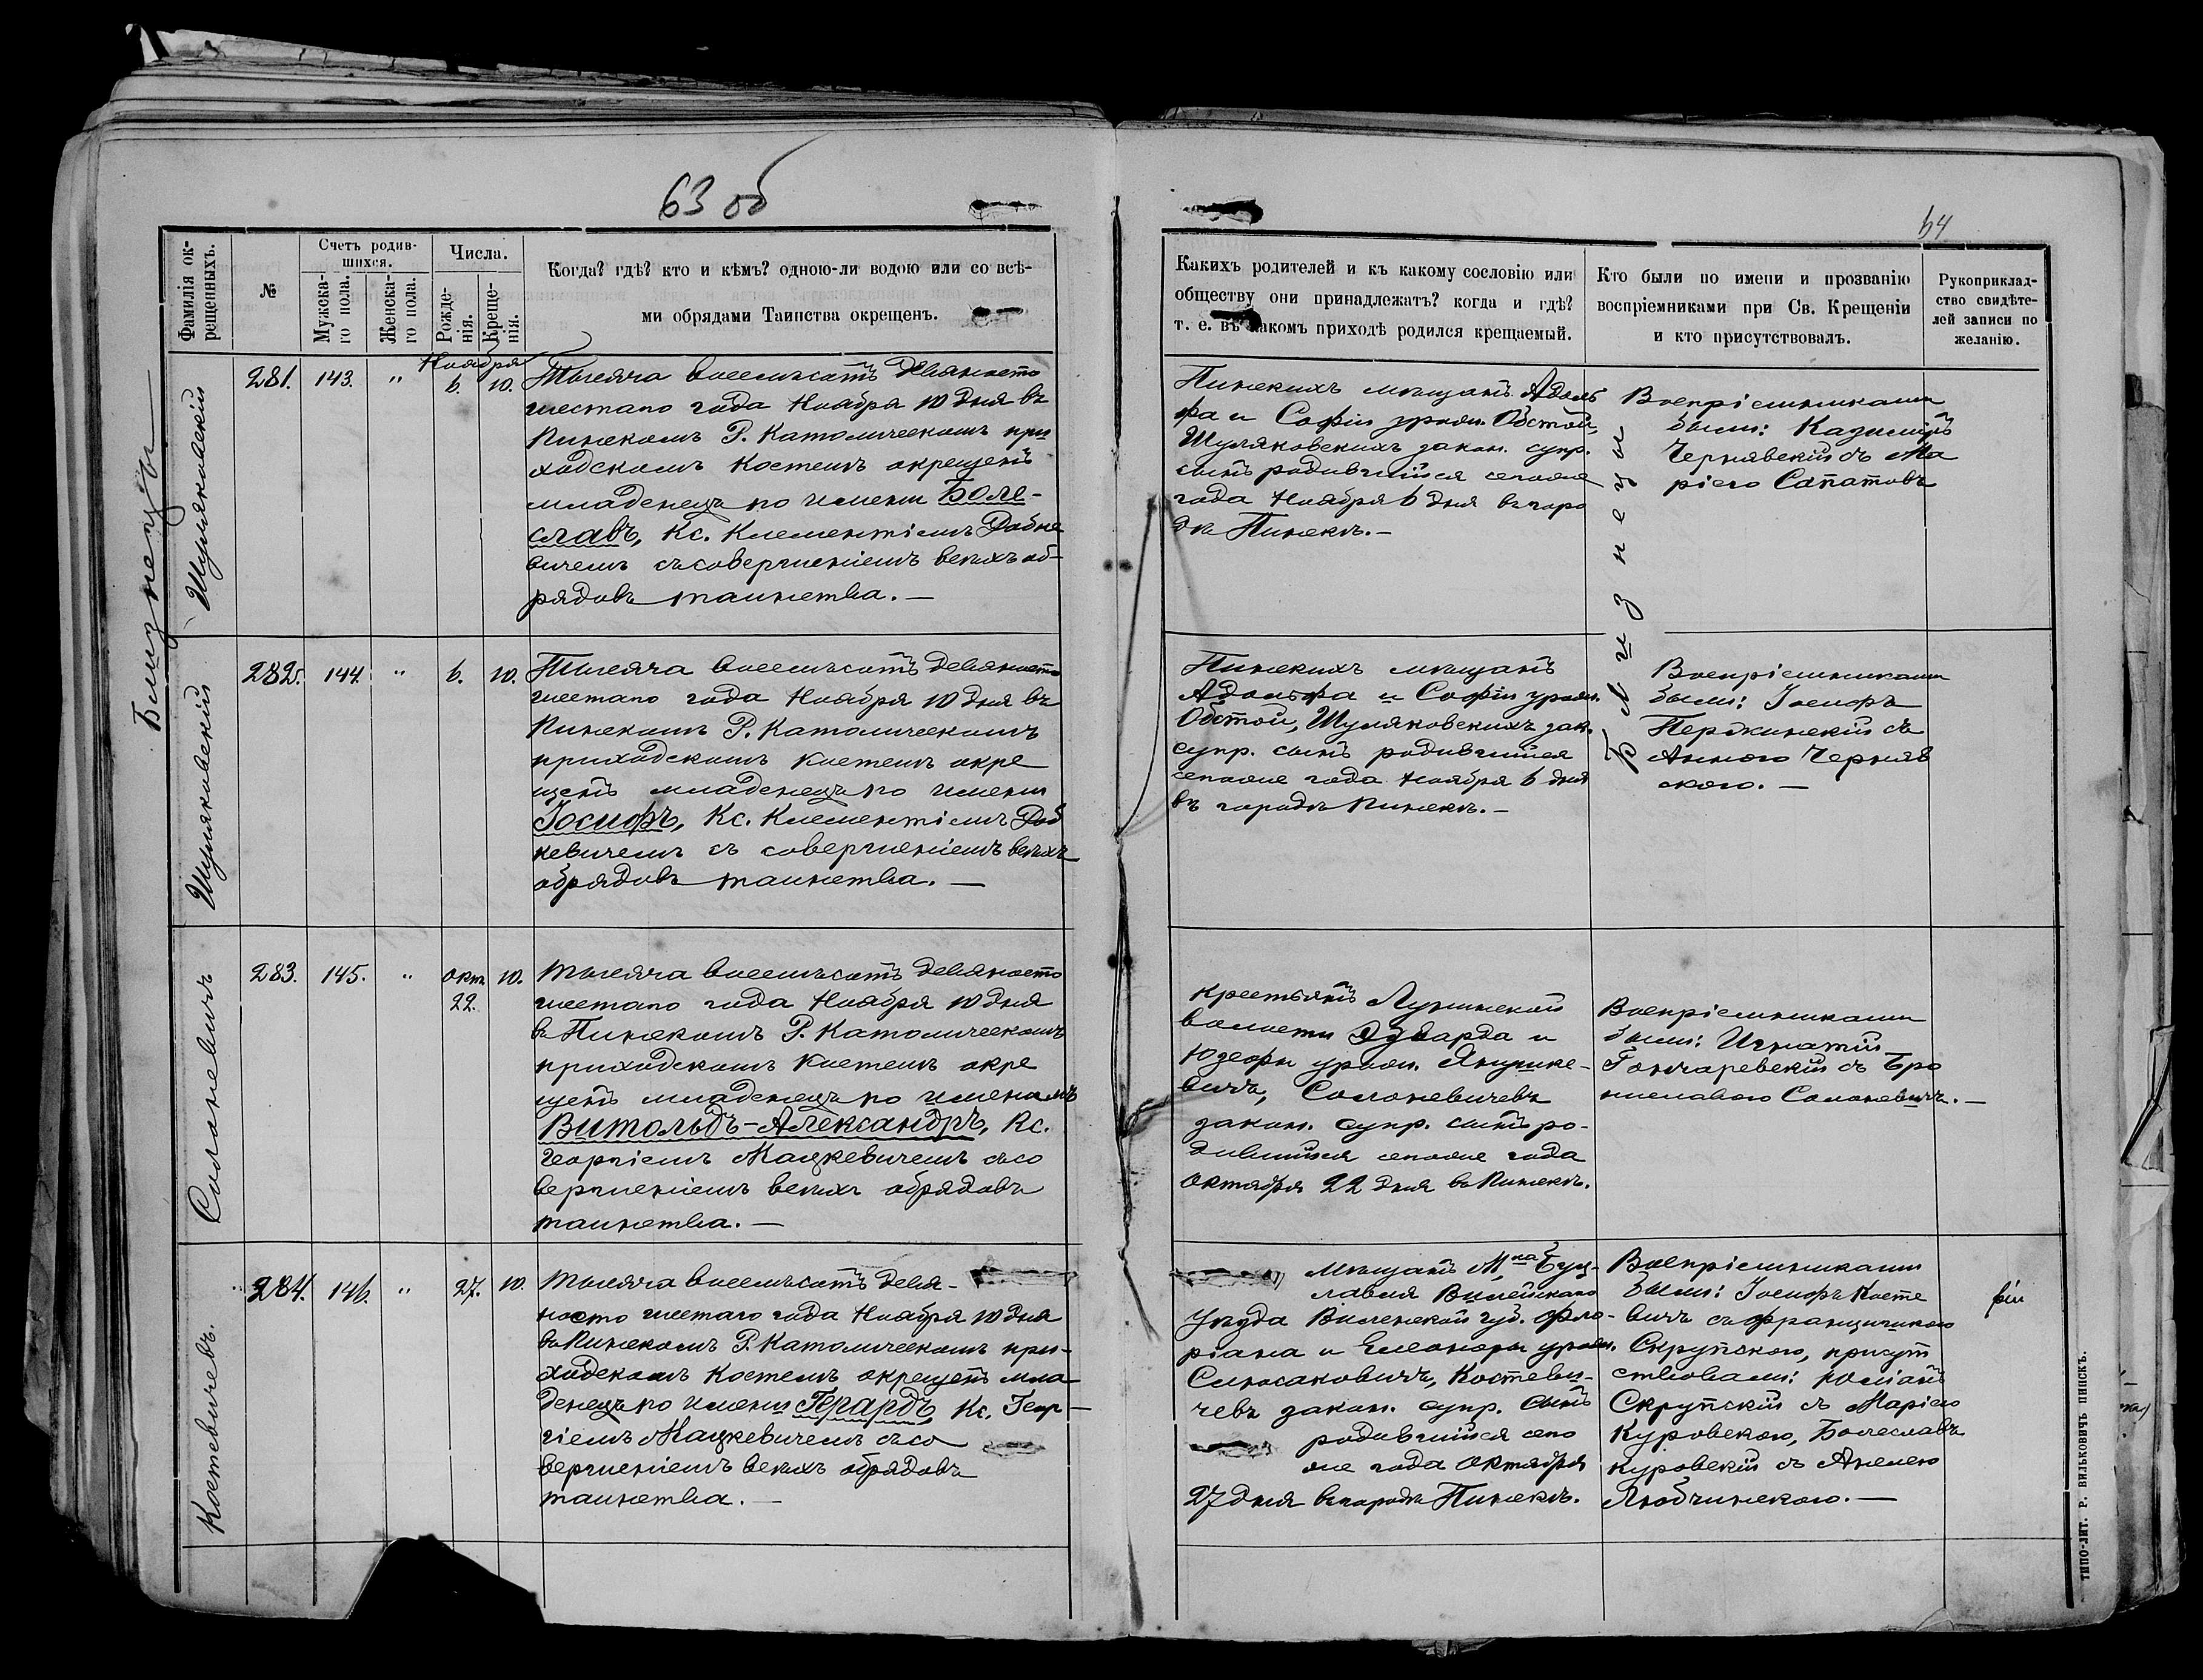 63 об
64
Фамилія ок-
рещенныхъ.
№
Счетъ родив-
шихся.
Мужска-
го пола.
Женска-
го пола.
Числа.
Рожде-
нія.
Креще-
нія.
Когда? гдѣ? кто и кѣмъ? одною-ли водою или со всѣ-
ми обрядами Таинства окрещенъ.
Какихъ родителей и къ какому сословію или
обществу они принадлежатъ? когда и гдѣ?
т. е. въ какомъ приходѣ родился крещаемый.
Кто были по имени и прозванію
воспріемниками при Св. Крещеніи
и кто присутствовалъ.
Рукоприклад-
ство свидѣте-
лей записи по
желанію.
Близнецы
Шуляковскій
281.
143.
"
Ноября
6.
10.
Тысяча восемьсотъ девяносто
шестаго года Ноября 10 дня въ
Пинскомъ Р. Католическомъ при
ходскомъ костелѣ окрещенъ
младенецъ по имени Боле-
славъ, Кс. Клементіемъ Добке
вичемъ съ совершеніемъ всѣхъ об-
рядовъ таинства. —
Пинскихъ мѣщанъ Адоль
фа и Софіи урожд. Обстой,
Шуляковскихъ закон. супр.
сынъ родившійся сего же
года Ноября 6 дня въ горо
дѣ Пинскѣ. —
Близнецы
Воспріемниками
были: Казиміръ
Чернявскій съ Ма
ріею Сапатовъ
Шуляковскій
282.
144.
"
6.
10.
Тысяча восемьсотъ девяносто
шестаго года Ноября 10 дня въ
Пинскомъ Р. Католическомъ
приходскомъ костелѣ окре
щенъ младенецъ по имени
Іосифъ, Кс. Клементіемъ Доб
кевичемъ съ совершеніемъ всѣхъ
обрядовъ таинства. —
Пинскихъ мѣщанъ
Адольфа и Софіи урожд.
Обстой, Шуляковскихъ зак.
супр. сынъ родившійся
сего же года Ноября 6 дня
въ городѣ Пинскѣ. —
Воспріемниками
были: Іосифъ
Пержинскій съ
Анною Черняв
скою. —
Солоневичъ
283.
145.
"
Окт.
22.
10.
Тысяча восемьсотъ девяносто
шестаго года Ноября 10 дня
въ Пинскомъ Р. Католическомъ
приходскомъ костелѣ окре
щенъ младенецъ по именамъ
Витольдъ-Александръ, Кс.
Георгіемъ Мацкевичемъ съ со
вершеніемъ всѣхъ обрядовъ
таинства. —
Крестьянъ Лунинской
волости Эдварда и
Юзефы урожд. Янушке-
вичъ, Солоневичевъ
закон. супр. сынъ ро-
дившійся сего же года
Октября 22 дня въ Пинскѣ.
Воспріемниками
были: Игнатій
Гончаревскій съ Бро
ниславою Солоневичъ. —
Костевичевъ.
284.
146.
"
27.
10.
Тысяча восемьсотъ девя-
носто шестаго года Ноября 10 дня
въ Пинскомъ Р. Католическомъ при-
ходскомъ костелѣ окрещенъ мла
денецъ по имени Герардъ, Кс. Геор-
гіемъ Мацкевичемъ съ со
вершеніемъ всѣхъ обрядовъ
таинства. —
Мѣщанъ М-ка Буц-
лавля Вилейскаго
уѣзда Виленской губ. Фло-
ріана и Елеоноры урожд.
Костеви-
чевъ закон. супр. сынъ
родившійся сего
же года Октября
27 дня въ городѣ Пинскѣ.
Воспріемниками
были: Іосифъ Косте
вичъ съ Францишкою
Скрупскою, присут
ствовали: Юліанъ
Скрупскій съ Маріею
Куровскою, Болеславъ
Куровскій съ Анелею
Любчинскою. —
ТИПО-ЛИТ. Р. ВИЛЬКОВИЧЪ ПИНСКЪ.